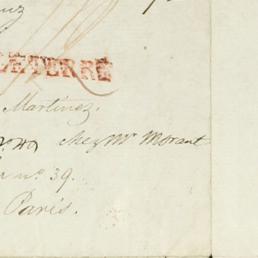 LETERRE
Martinez.
chez Mr Morant
nº. 39.
Paris.